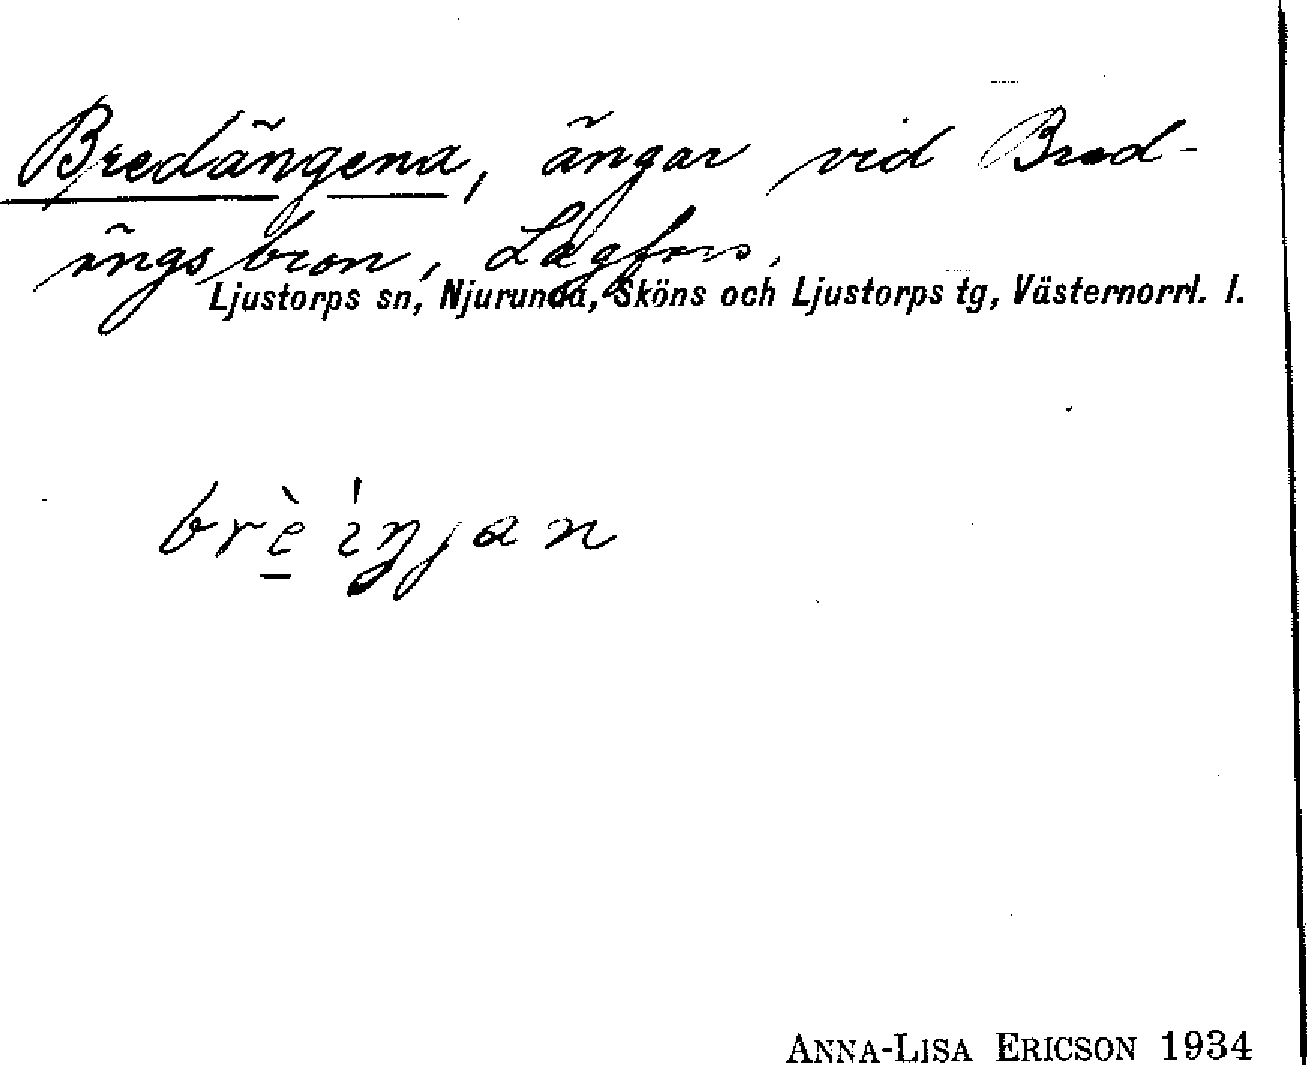 Bredängena, ängar vid Bred-
ängsbron, Lagfors.
Ljustorps sn, Njurunda, Sköns och Ljustorps tg, Västernorrl. l.
brè̱ ìŋjan
ANNA-LISA ERICSON 1934